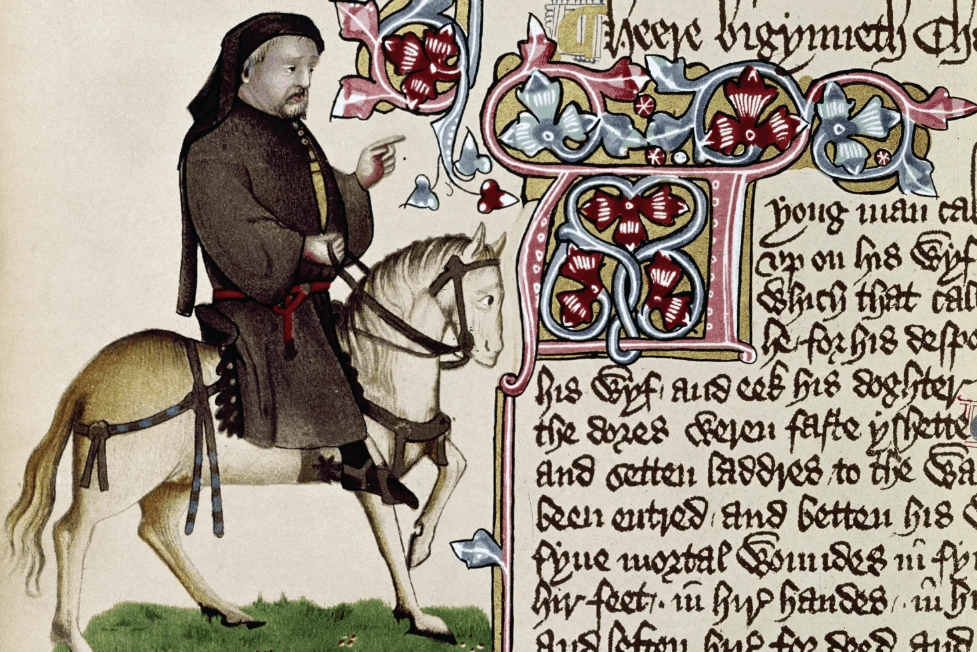 heere bigynneth Ch
yong man ca
vp on his Wyf
Which that cal
he for his despo
his Wyf and eek his doghter
the dores weren faste yshette
and setten laddres to the Wa
been entred and betten his
fyue mortal Woundes in
hir feet in hir handes in h
And leften hir for deed and